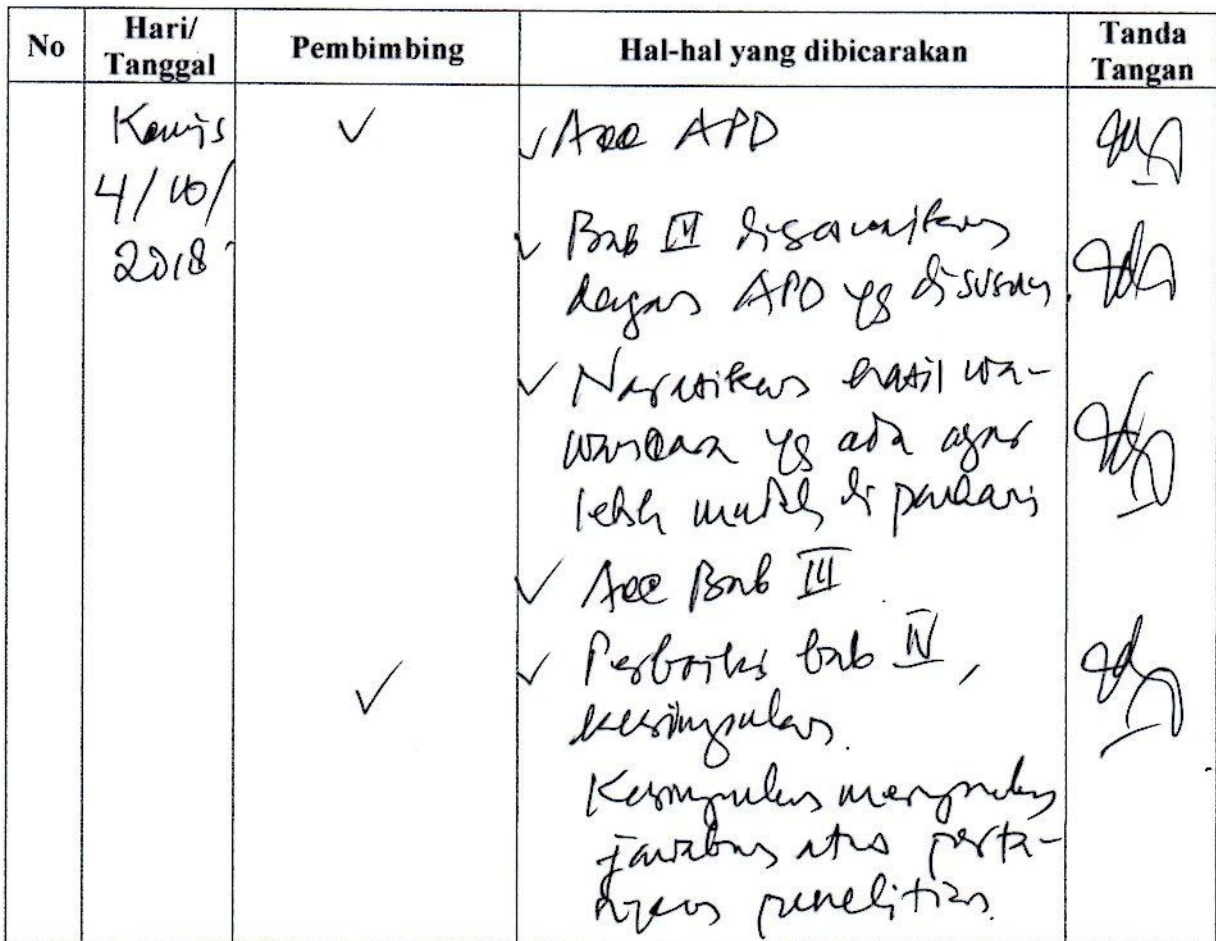 No Hari/ Tanggal Pembimbing Hal-hal yang dibicarakan Tanda Tangan
Kamis ✓ ✓ Acc APD
4/10/
2018
✓ Bab III disesuaikan
dengan APD yg disusun.
✓ Narasikan hasil wa-
wancara yg ada agar
lebih mudah dipahami
✓ Acc Bab III
✓ ✓ Perbaiki bab IV,
kesimpulan.
Kesimpulan merupakan
jawaban atas perta-
nyaan penelitian.